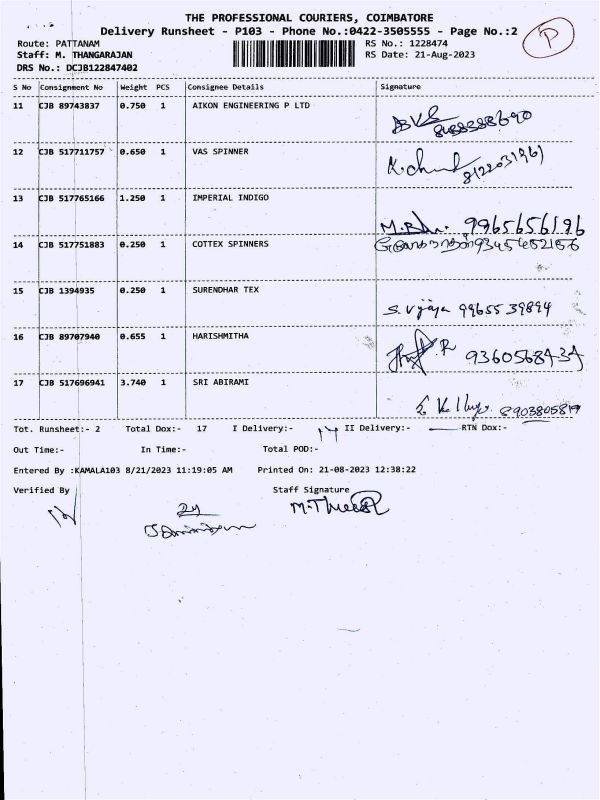 THE PROFESSIONAL COURIERS, COIMBATORE
Delivery Runsheet - P103 - Phone No.:0422-3505555 - Page No.:2
P
Route: PATTANAM RS No.: 1228474
Staff: M. THANGARAJAN RS Date: 21-Aug-2023
DRS No.: DCJB122847402
S No Consignment No Weight PCS Consignee Details Signature
11 CJB 89743837 0.750 1 AIKON ENGINEERING P LTD
12 CJB 517711757 0.650 1 VAS SPINNER
8122031961
13 CJB 517765166 1.250 1 IMPERIAL INDIGO
9965656196
14 CJB 517751883 0.250 1 COTTEX SPINNERS
9345452156
15 CJB 1394935 0.250 1 SURENDHAR TEX
S. Vijaya 9965539894
16 CJB 89707940 0.655 1 HARISHMITHA
R 9360568434
17 CJB 517696941 3.740 1 SRI ABIRAMI
8903805819
Tot. Runsheet:- 2 Total Dox:- 17 I Delivery:- 17 II Delivery:- RTN Dox:-
Out Time:- In Time:- Total POD:-
Entered By :KAMALA103 8/21/2023 11:19:05 AM Printed On: 21-08-2023 12:38:22
Verified By Staff Signature